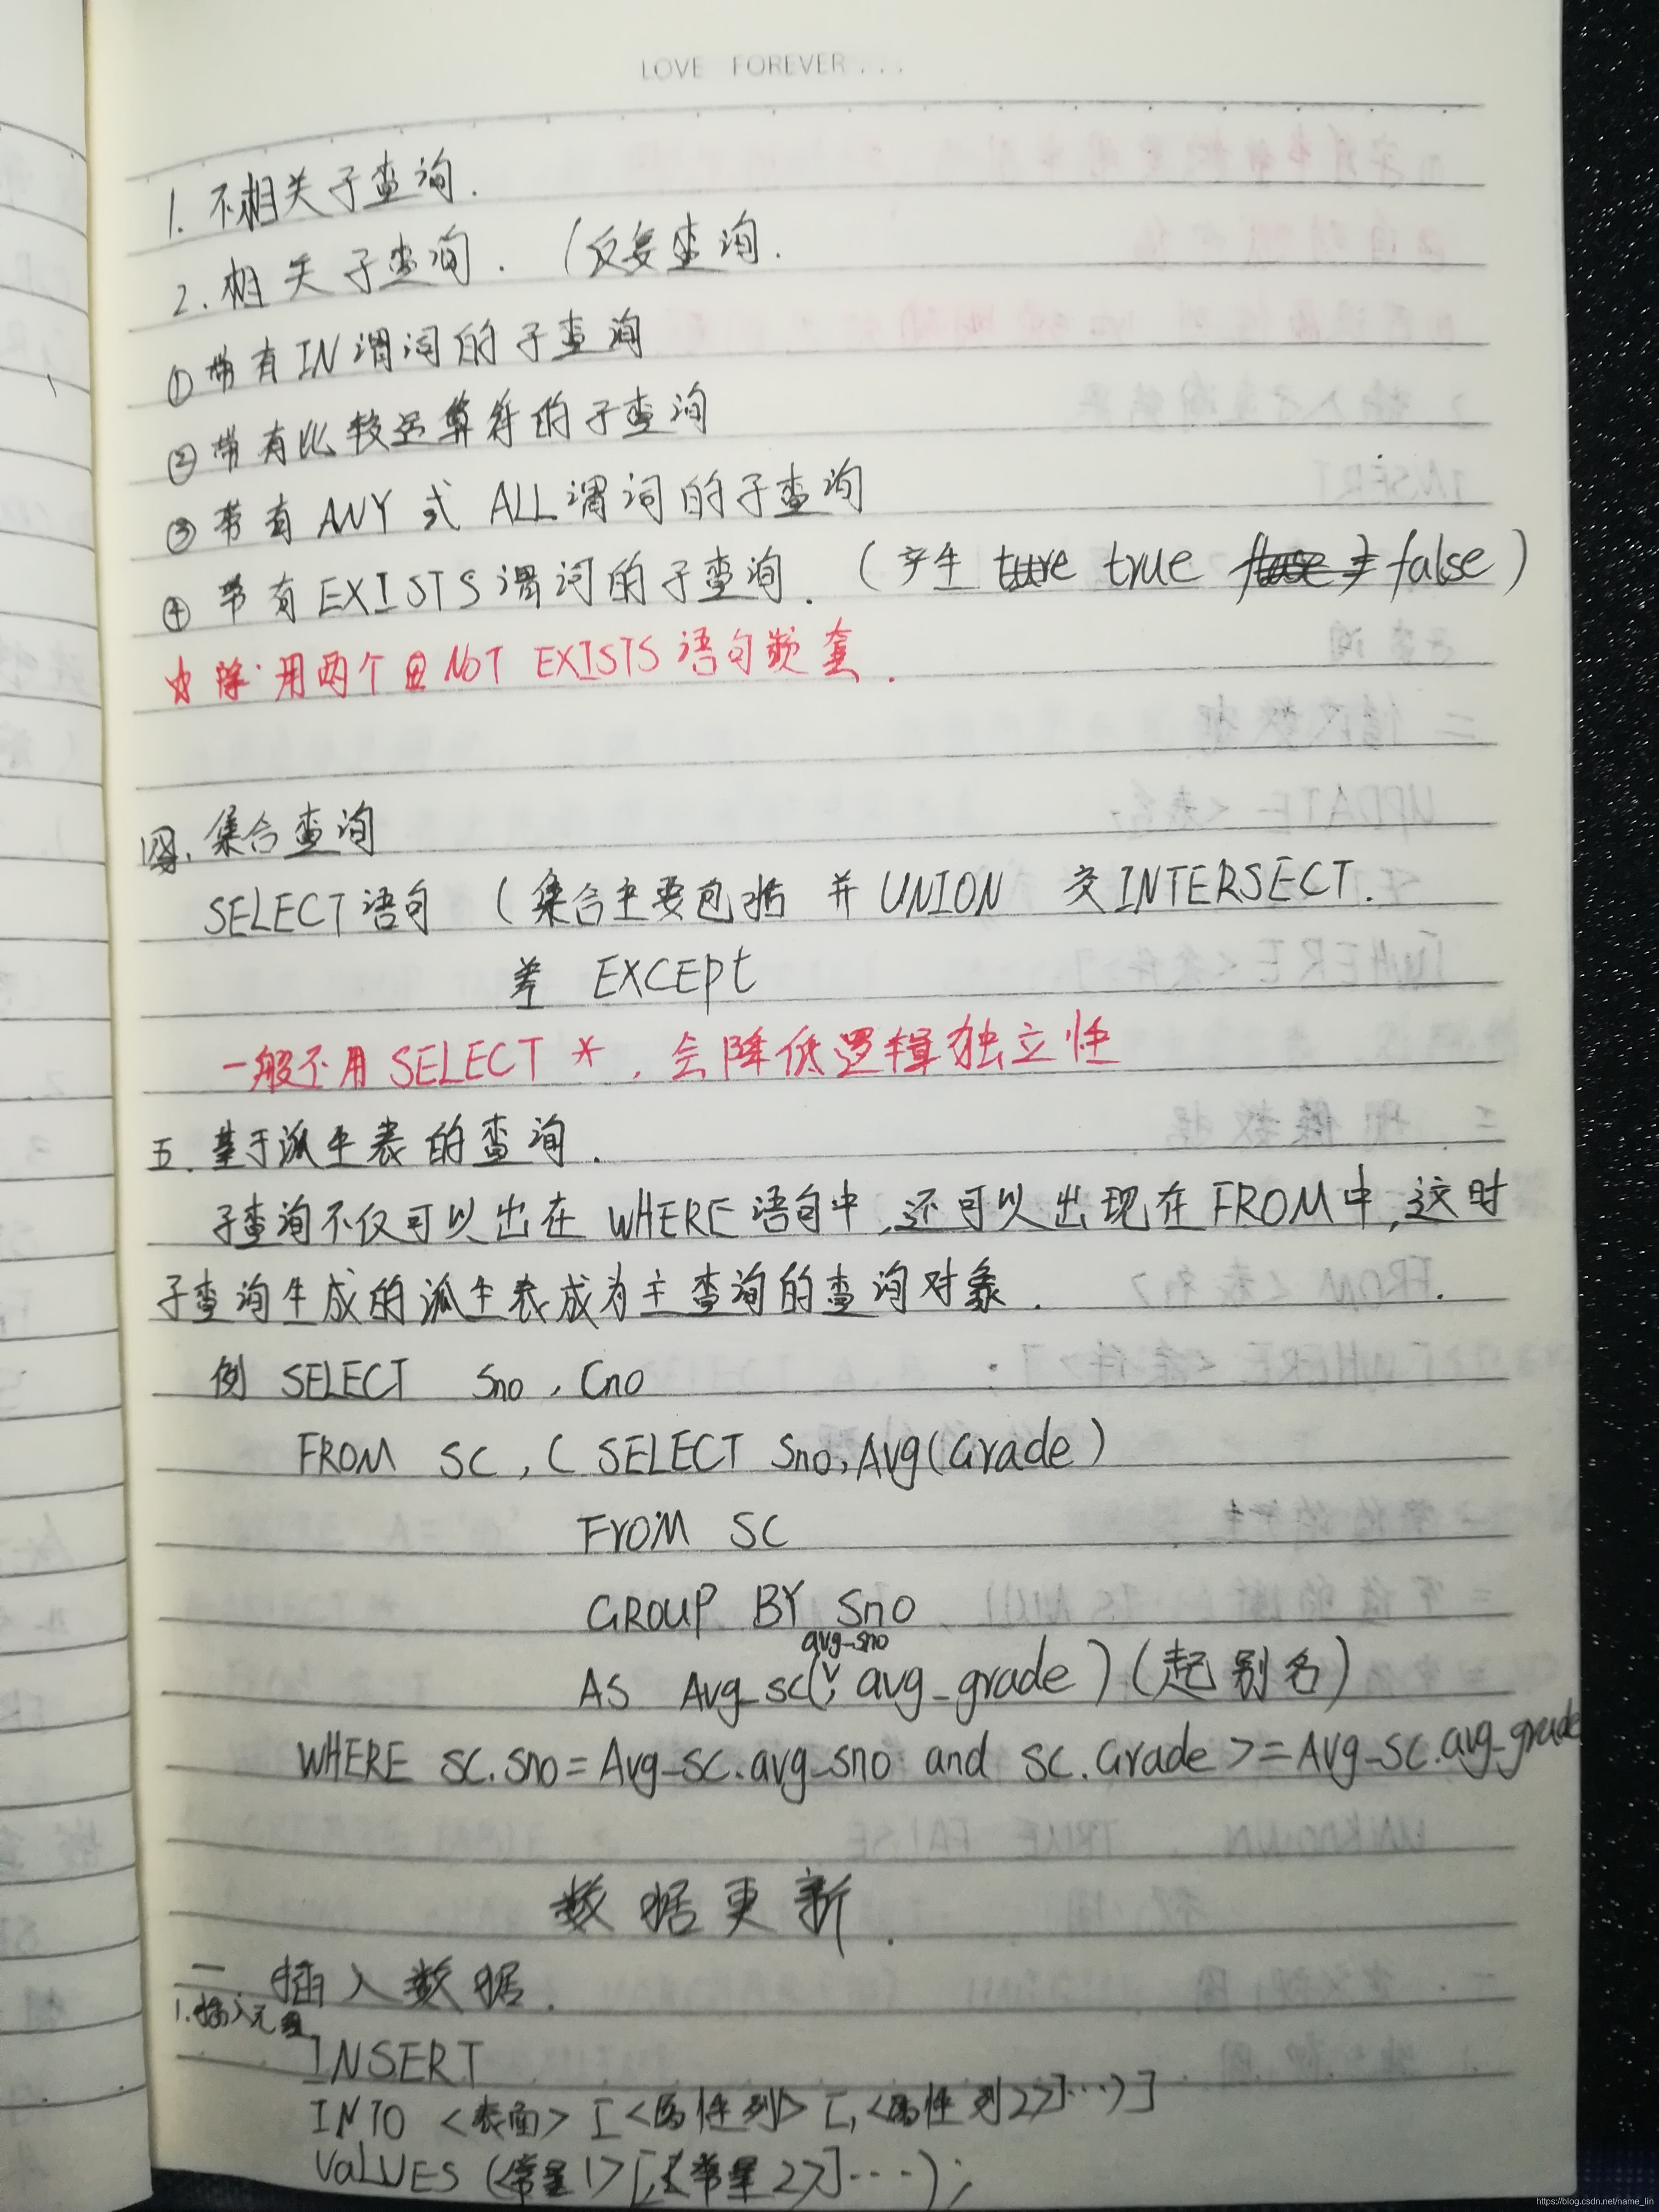 LOVE FOREVER...
1. 不相关子查询.
2. 相关子查询. (反复查询.
① 带有IN谓词的子查询
② 带有比较运算符的子查询
③ 带有 ANY 或 ALL谓词的子查询
④ 带有EXISTS谓词的子查询. (产生 ture true false)
☆ 除:用两个 NOT EXISTS 语句嵌套.
四. 集合查询
SELECT语句 (集合主要包括 并 UNION 交INTERSECT.
差 EXCEPt
一般不用 SELECT *, 会降低逻辑独立性
五. 基于派生表的查询.
子查询不仅可以出在 WHERE 语句中,还可以出现在FROM中,这时
子查询生成的派生表成为主查询的查询对象.
例 SELECT Sno, Cno
FROM SC, ( SELECT Sno, Avg(Grade)
FroM SC
GROUP BY Sno
avg_sno
AS Avg_sc(, avg_grade) (起别名)
WHERE SC.sno = Avg_sc.avg_sno and SC.Grade >= Avg_sc.avg_grade
数据更新.
一 插入数据.
1.插入元组
INSERT
INTO <表面> [<属性列> [,<属性列2>]…)]
VaLUES (<常量1>[,<常量2>]…);
https://blog.csdn.net/name_lin